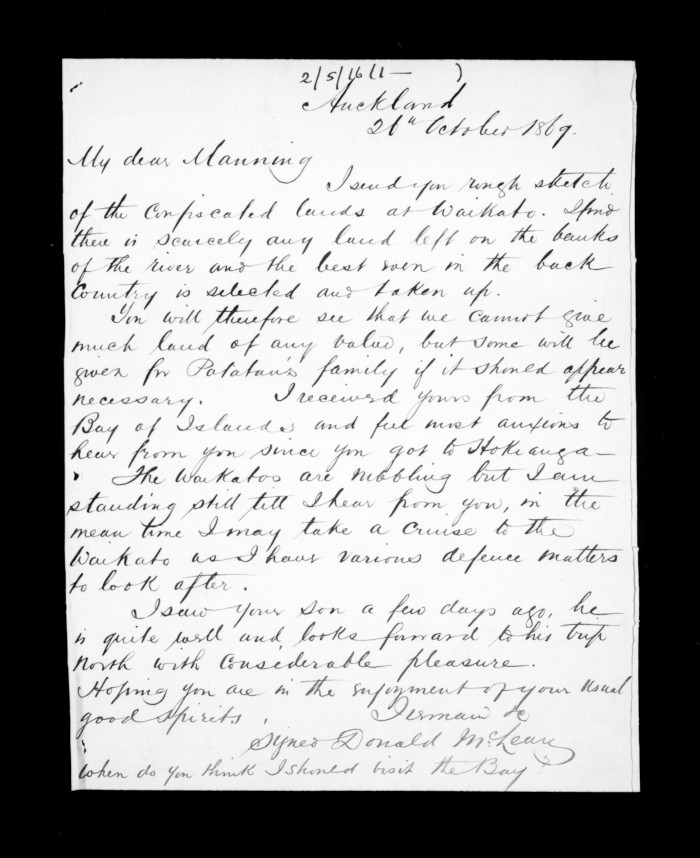 2/5/16 (1— )
Auckland
26th October 1869.
My dear Manning
I send you rough sketch
of the Confiscated lands at Waikato. I find
there is scarcely any land left on the banks
of the river and the best even in the back
Country is selected and taken up.
You will therefore see that we cannot give
much land of any value, but some will be
given for Potatau's family if it should appear
necessary. I received yours from the
Bay of Islands and feel most anxious to
hear from you since you got to Hokianga—
The Waikatos are nibbling but I am
standing still till I hear from you, in the
mean time I may take a Cruise to the
Waikato as I have various defence matters
to look after.
I saw your son a few days ago, he
is quite well and looks forward to his trip
North with Considerable pleasure.
Hoping you are in the enjoyment of your usual
good spirits,
I remain &c
Signed Donald McLean
When do you think I should visit the Bay?